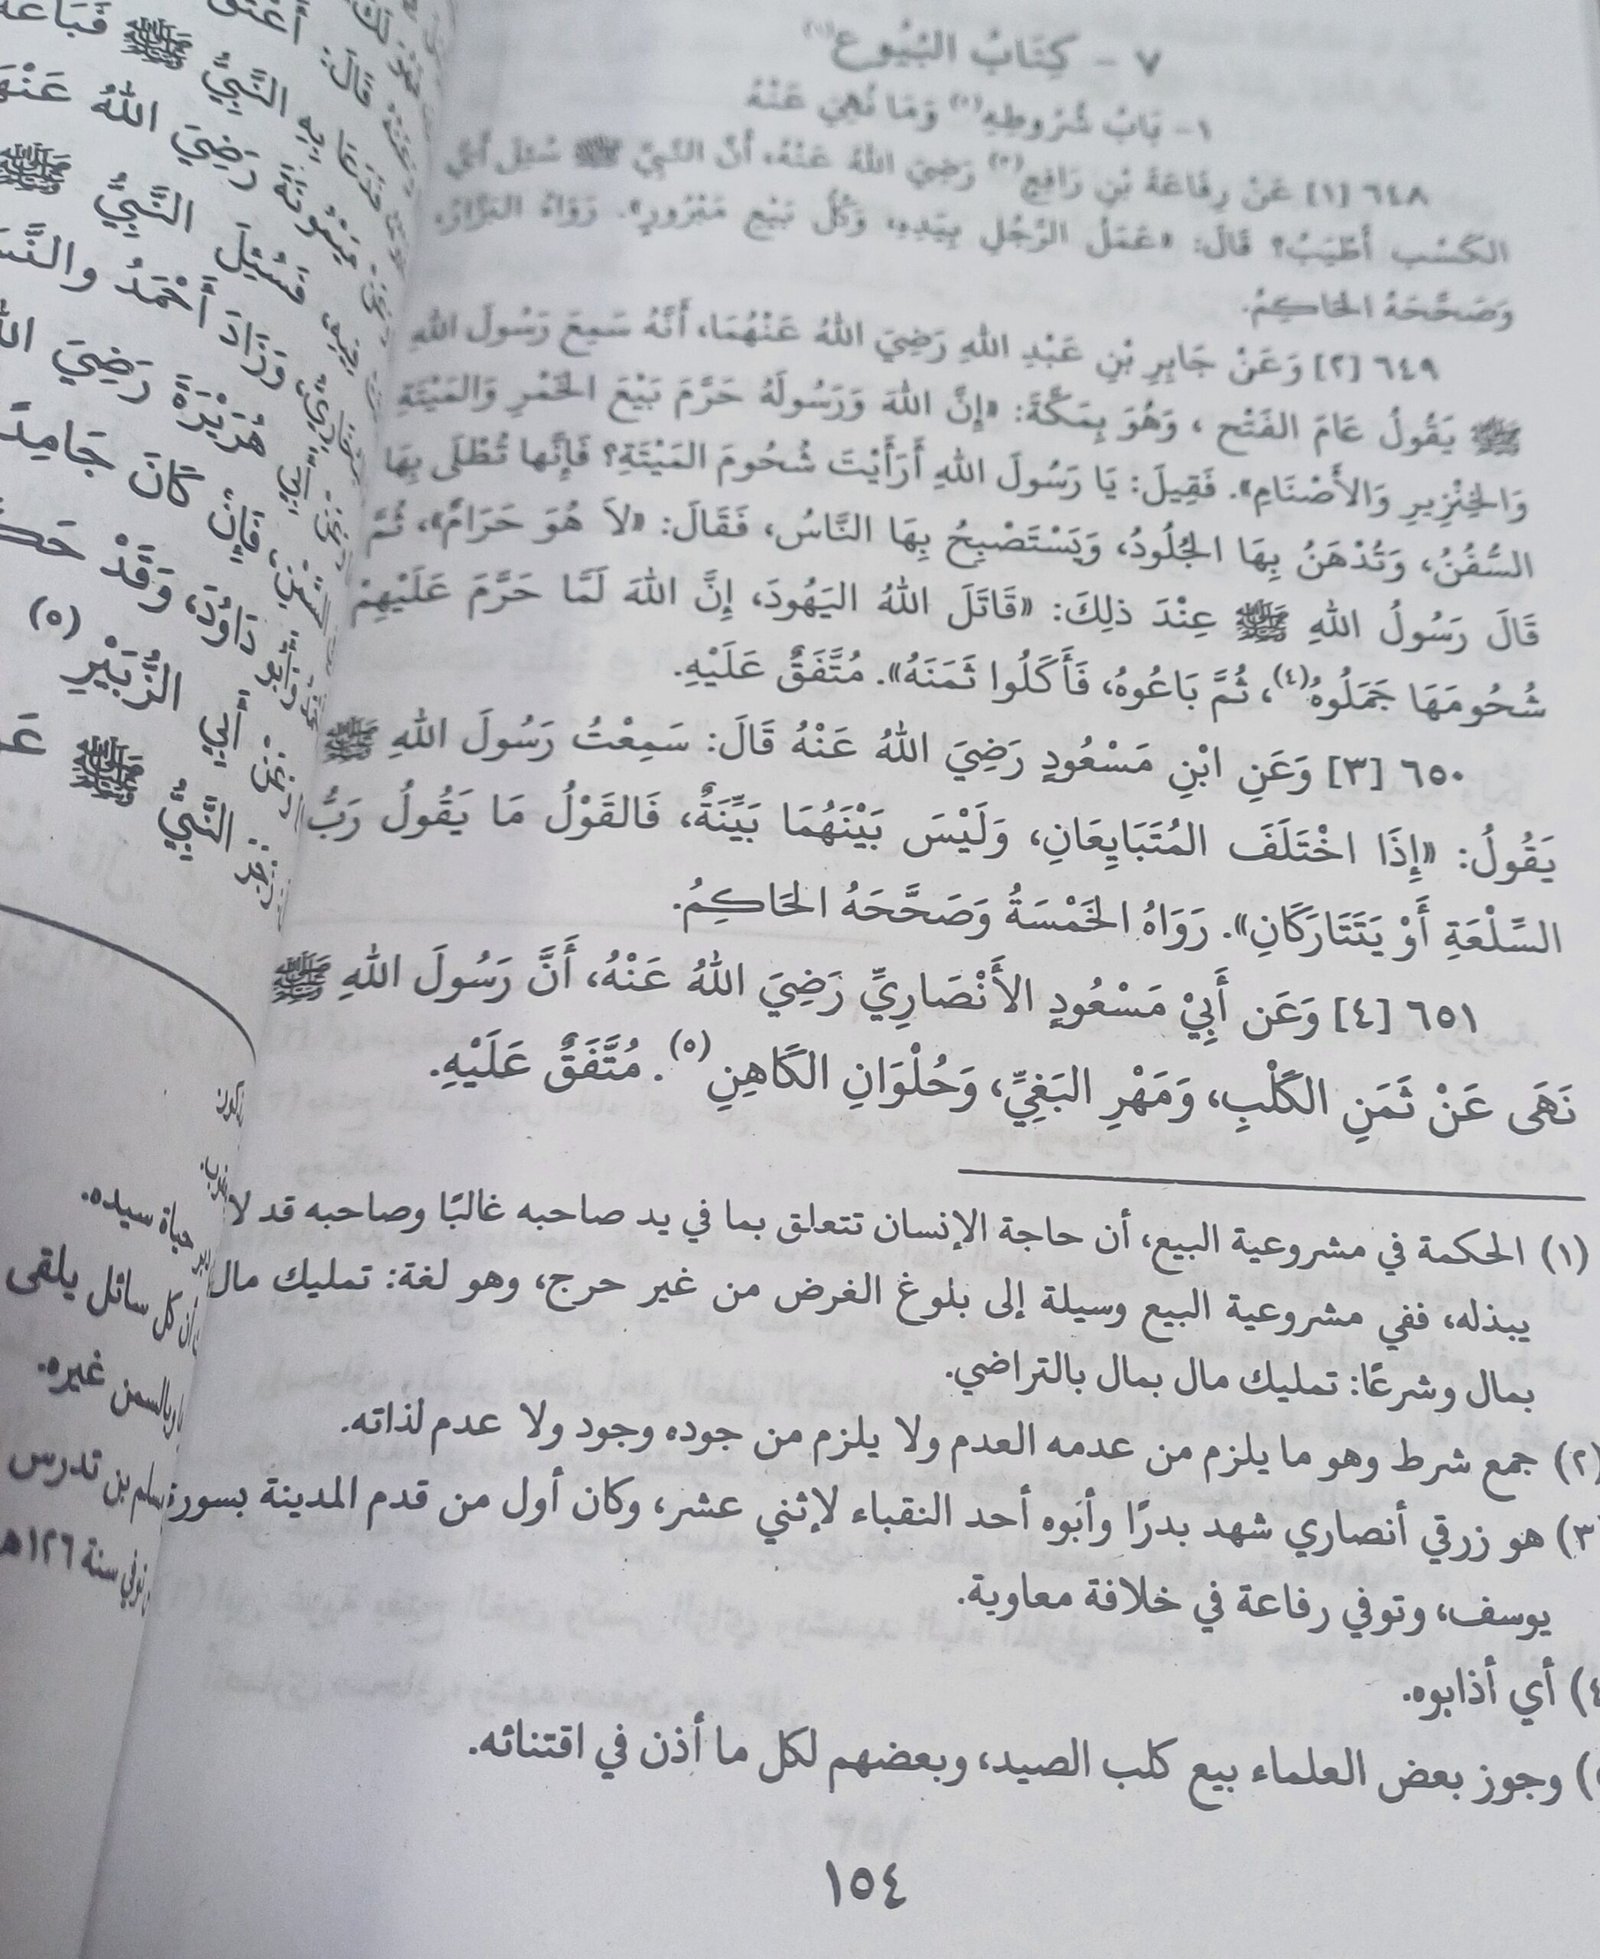 ٧ - كِتَابُ البُيُوعِ (١)
١- بَابُ شُرُوطِهِ (٢) وَمَا نُهِيَ عَنْهُ
٦٤٨ [١] عَنْ رِفَاعَةَ بْنِ رَافِعٍ (٣) رَضِيَ اللهُ عَنْهُ، أَنَّ النَّبِيَّ ﷺ سُئِلَ أَيُّ
الكَسْبِ أَطْيَبُ؟ قَالَ: «عَمَلُ الرَّجُلِ بِيَدِهِ، وَكُلُّ بَيْعٍ مَبْرُورٍ». رَوَاهُ البَزَّارُ،
وَصَحَّحَهُ الحَاكِمُ.
٦٤٩ [٢] وَعَنْ جَابِرِ بْنِ عَبْدِ اللهِ رَضِيَ اللهُ عَنْهُمَا، أَنَّهُ سَمِعَ رَسُولَ اللهِ
ﷺ يَقُولُ عَامَ الفَتْحِ ، وَهُوَ بِمَكَّةَ: «إِنَّ اللهَ وَرَسُولَهُ حَرَّمَ بَيْعَ الخَمْرِ وَالمَيْتَةِ
وَالخِنْزِيرِ وَالأَصْنَامِ». فَقِيلَ: يَا رَسُولَ اللهِ أَرَأَيْتَ شُحُومَ المَيْتَةِ؟ فَإِنَّها تُطْلَى بِهَا
السُّفُنُ، وَتُدْهَنُ بِهَا الجُلُودُ، وَيَسْتَصْبِحُ بِهَا النَّاسُ، فَقَالَ: «لَا هُوَ حَرَامٌ»، ثُمَّ
قَالَ رَسُولُ اللهِ ﷺ عِنْدَ ذلِكَ: «قَاتَلَ اللهُ اليَهُودَ، إِنَّ اللهَ لَمَّا حَرَّمَ عَلَيْهِمْ
شُحُومَهَا جَمَلُوهُ (٤)، ثُمَّ بَاعُوهُ، فَأَكَلُوا ثَمَنَهُ». مُتَّفَقٌ عَلَيْهِ.
٦٥٠ [٣] وَعَنِ ابْنِ مَسْعُودٍ رَضِيَ اللهُ عَنْهُ قَالَ: سَمِعْتُ رَسُولَ اللهِ ﷺ
يَقُولُ: «إِذَا اخْتَلَفَ المُتَبَايِعَانِ، وَلَيْسَ بَيْنَهُمَا بَيِّنَةٌ، فَالقَوْلُ مَا يَقُولُ رَبُّ
السِّلْعَةِ أَوْ يَتَتَارَكَانِ». رَوَاهُ الخَمْسَةُ وَصَحَّحَهُ الحَاكِمُ.
٦٥١ [٤] وَعَن أَبِيْ مَسْعُودٍ الأَنْصَارِيِّ رَضِيَ اللهُ عَنْهُ، أَنَّ رَسُولَ اللهِ ﷺ
نَهَى عَنْ ثَمَنِ الكَلْبِ، وَمَهْرِ البَغِيِّ، وَحُلْوَانِ الكَاهِنِ (٥). مُتَّفَقٌ عَلَيْهِ.
(١) الحكمة في مشروعية البيع، أن حاجة الإنسان تتعلق بما في يد صاحبه غالبًا وصاحبه قد لا
يبذله، ففي مشروعية البيع وسيلة إلى بلوغ الغرض من غير حرج، وهو لغة: تمليك مال
بمال وشرعًا: تمليك مال بمال بالتراضي.
(٢) جمع شرط وهو ما يلزم من عدمه العدم ولا يلزم من جوده وجود ولا عدم لذاته.
(٣) هو زرقي أنصاري شهد بدرًا وأبوه أحد النقباء لإثني عشر، وكان أول من قدم المدينة بسورة
يوسف، وتوفي رفاعة في خلافة معاوية.
٤) أي أذابوه.
) وجوز بعض العلماء بيع كلب الصيد، وبعضهم لكل ما أذن في اقتنائه.
١٥٤
قَالَ: أَعْتَقَ
النَّبِيُّ ﷺ فَبَاعَهُ
مَيْمُونَةَ رَضِيَ اللهُ عَنْهَا
فَسُئِلَ النَّبِيُّ ﷺ
وَزَادَ أَحْمَدُ والنَّسَ
أَبِي هُرَيْرَةَ رَضِيَ
فَإِنْ كَانَ جَامِدًا
دَاوُدَ، وَقَدْ حَكَ
أَبِي الزُّبَيْرِ (٥)
النَّبِيُّ ﷺ عَ
حياة سيده.
أن كل سائل يلقى
غيره.
بن تدرس
توفي سنة ١٢٦هـ